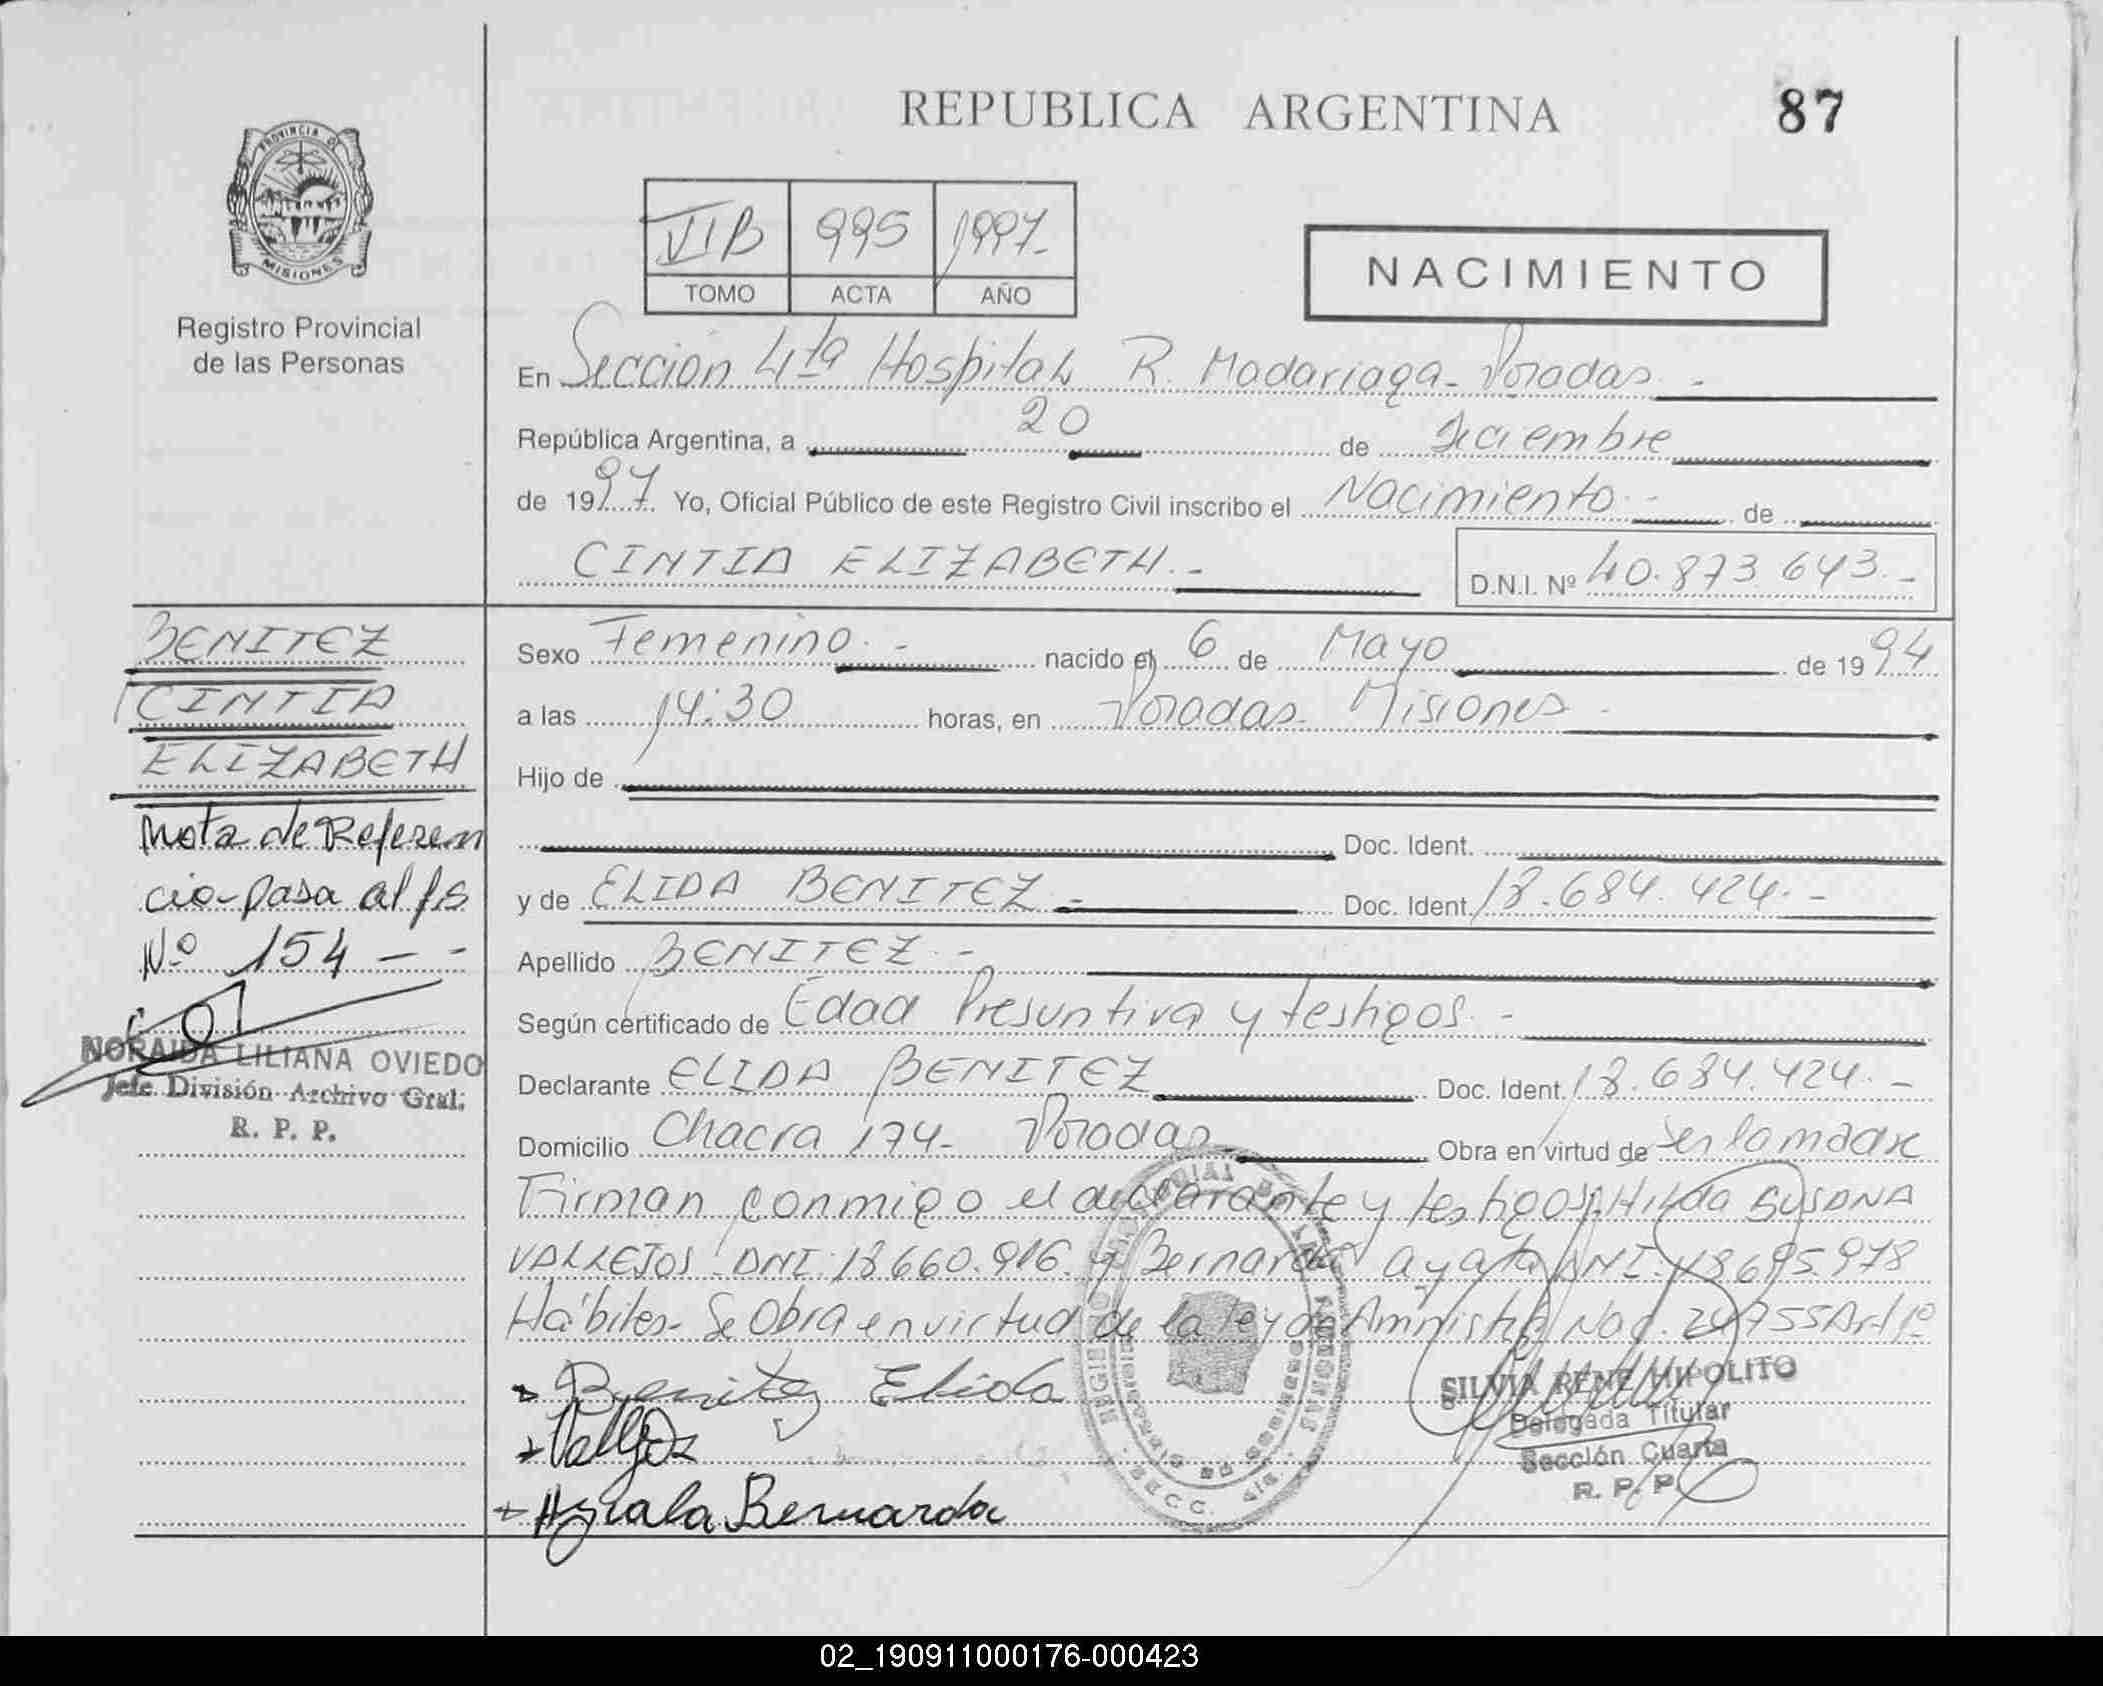 REPUBLICA ARGENTINA
87
PROVINCIA DE
MISIONES
Registro Provincial
de las Personas
VIB 995 1997.-
TOMO ACTA AÑO
NACIMIENTO
En Sección 4ta Hospital R. Madariaga - Posadas.-
República Argentina, a 20 de Diciembre
de 1997. Yo, Oficial Público de este Registro Civil inscribo el Nacimiento.- de
CINTIA ELIZABETH.-
D.N.I. Nº 40.873.643.-
BENITEZ
CINTIA
ELIZABETH
Nota de Referen
cia-pasa al fs
Nº 154 - -
NORAIDA LILIANA OVIEDO
Jefe División Archivo Gral.
R. P. P.
Sexo Femenino.- nacido el 6 de Mayo de 1994
a las 14:30 horas, en Posadas Misiones -
Hijo de
Doc. Ident.
y de ELIDA BENITEZ - Doc. Ident. 18.684.424.-
Apellido BENITEZ.-
Según certificado de Edad Presuntiva y testigos.-
Declarante ELIDA BENITEZ Doc. Ident. 18.684.424.-
Domicilio Chacra 174- Posadas Obra en virtud de ser la madre
Firman conmigo el declarante y testigos: Hilda SUSANA
VALLEJOS DNI: 18660.916 y Bernarda ayala DNI. 18695.978
Hábiles- Se Obra en virtud de la ley de Amnistia Nac. 24755 Art 1º
Benitez Elida
Vallejoz
Ayala Bernarda
SILVIA RENE HIPOLITO
Delegada Titular
Sección Cuarta
R. P. P.
SECC. 4ta.
02_190911000176-000423